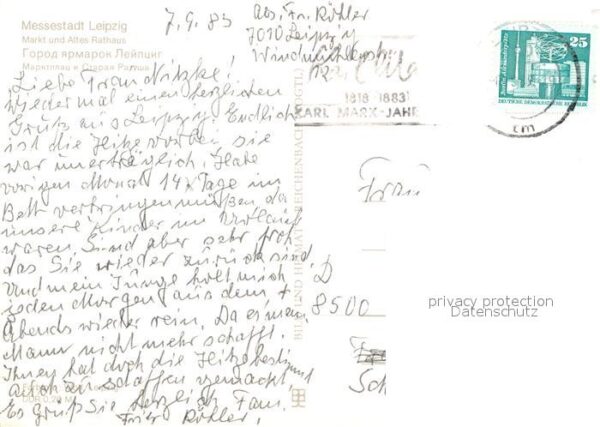 Messestadt Leipzig
Markt und Altes Rathaus
Город ярмарок Лейпциг
Марктплац и Старая Ратуша
7.9.83
Abs. Fr. Röhler
7010 Leipzig
Windmühlenstr.
Liebe Frau Nitzke!
Wieder mal einen herzlichen
Gruß aus Leipzig. Endlich
ist die Hitze vorbei sie
war unerträglich. Habe
vorigen Monat 14 Tage im
Bett verbringen müßen da
unsere Kinder im Urlaub
waren. Sind aber sehr froh
das Sie wieder zurück sind.
Und mein Junge holt mich
jeden Morgen aus dem +
Abends wieder rein. Da es mein
Mann nicht mehr schafft.
Ihnen hat doch die Hitze bestimmt
auch zu schaffen gemacht.
Es Grüßt Sie herzlich Fam.
Röhler.
DDR 0,20 M
BILD UND HEIMAT REICHENBACH (VOGTL)
1818 1883
KARL-MARX-JAHR
25
DEUTSCHE DEMOKRATISCHE REPUBLIK
Frau
D
8500
Sch
privacy protection
Datenschutz